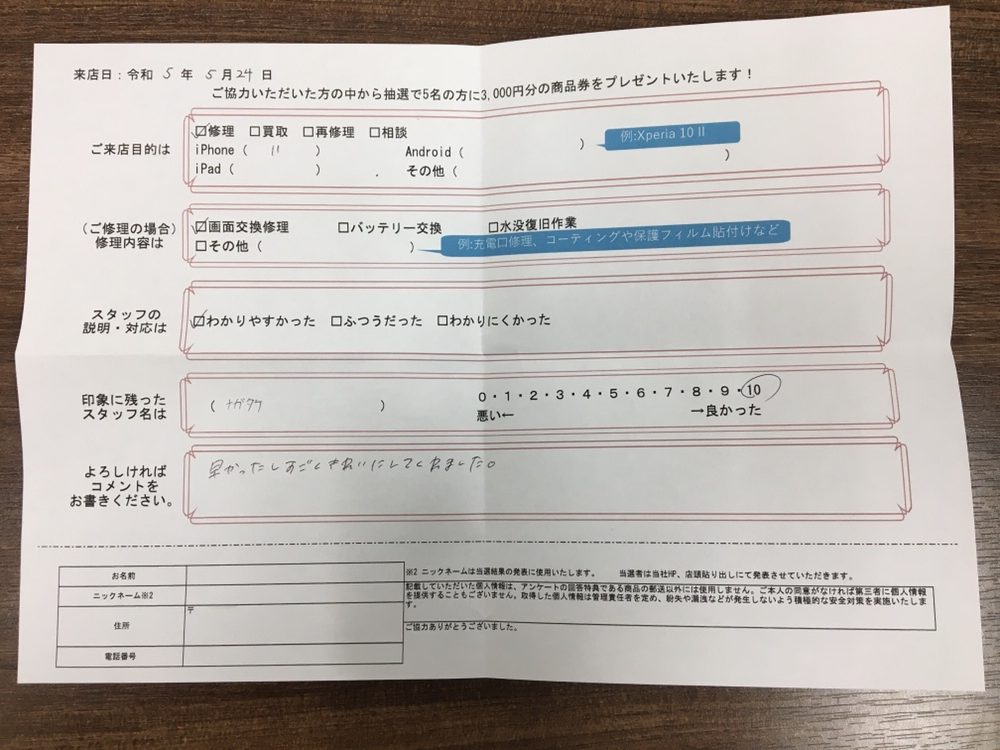 来店日：令和 5 年 5 月 24 日
ご協力いただいた方の中から抽選で5名の方に3,000円分の商品券をプレゼントいたします！
ご来店目的は
☑修理 □買取 □再修理 □相談
iPhone（ 11 ） Android（ ） 例:Xperia 10 II
iPad（ ） その他（ ）
（ご修理の場合）
修理内容は
☑画面交換修理 □バッテリー交換 □水没復旧作業
□その他（ ） 例:充電口修理、コーティングや保護フィルム貼付けなど
スタッフの
説明・対応は
☑わかりやすかった □ふつうだった □わかりにくかった
印象に残った
スタッフ名は
（ ナガタケ ） 0・1・2・3・4・5・6・7・8・9・10
悪い← →良かった
よろしければ
コメントを
お書きください。
早かったしすごくきれいにしてくれました。
お名前
ニックネーム※2
住所 〒
電話番号
※2 ニックネームは当選結果の発表に使用いたします。 当選者は当社HP、店頭貼り出しにて発表させていただきます。
記載していただいた個人情報は、アンケートの回答特典である商品の郵送以外には使用しません。ご本人の同意がなければ第三者に個人情報
を提供することもございません。取得した個人情報は管理責任者を定め、紛失や漏洩などが発生しないよう積極的な安全対策を実施いたしま
す。
ご協力ありがとうございました。